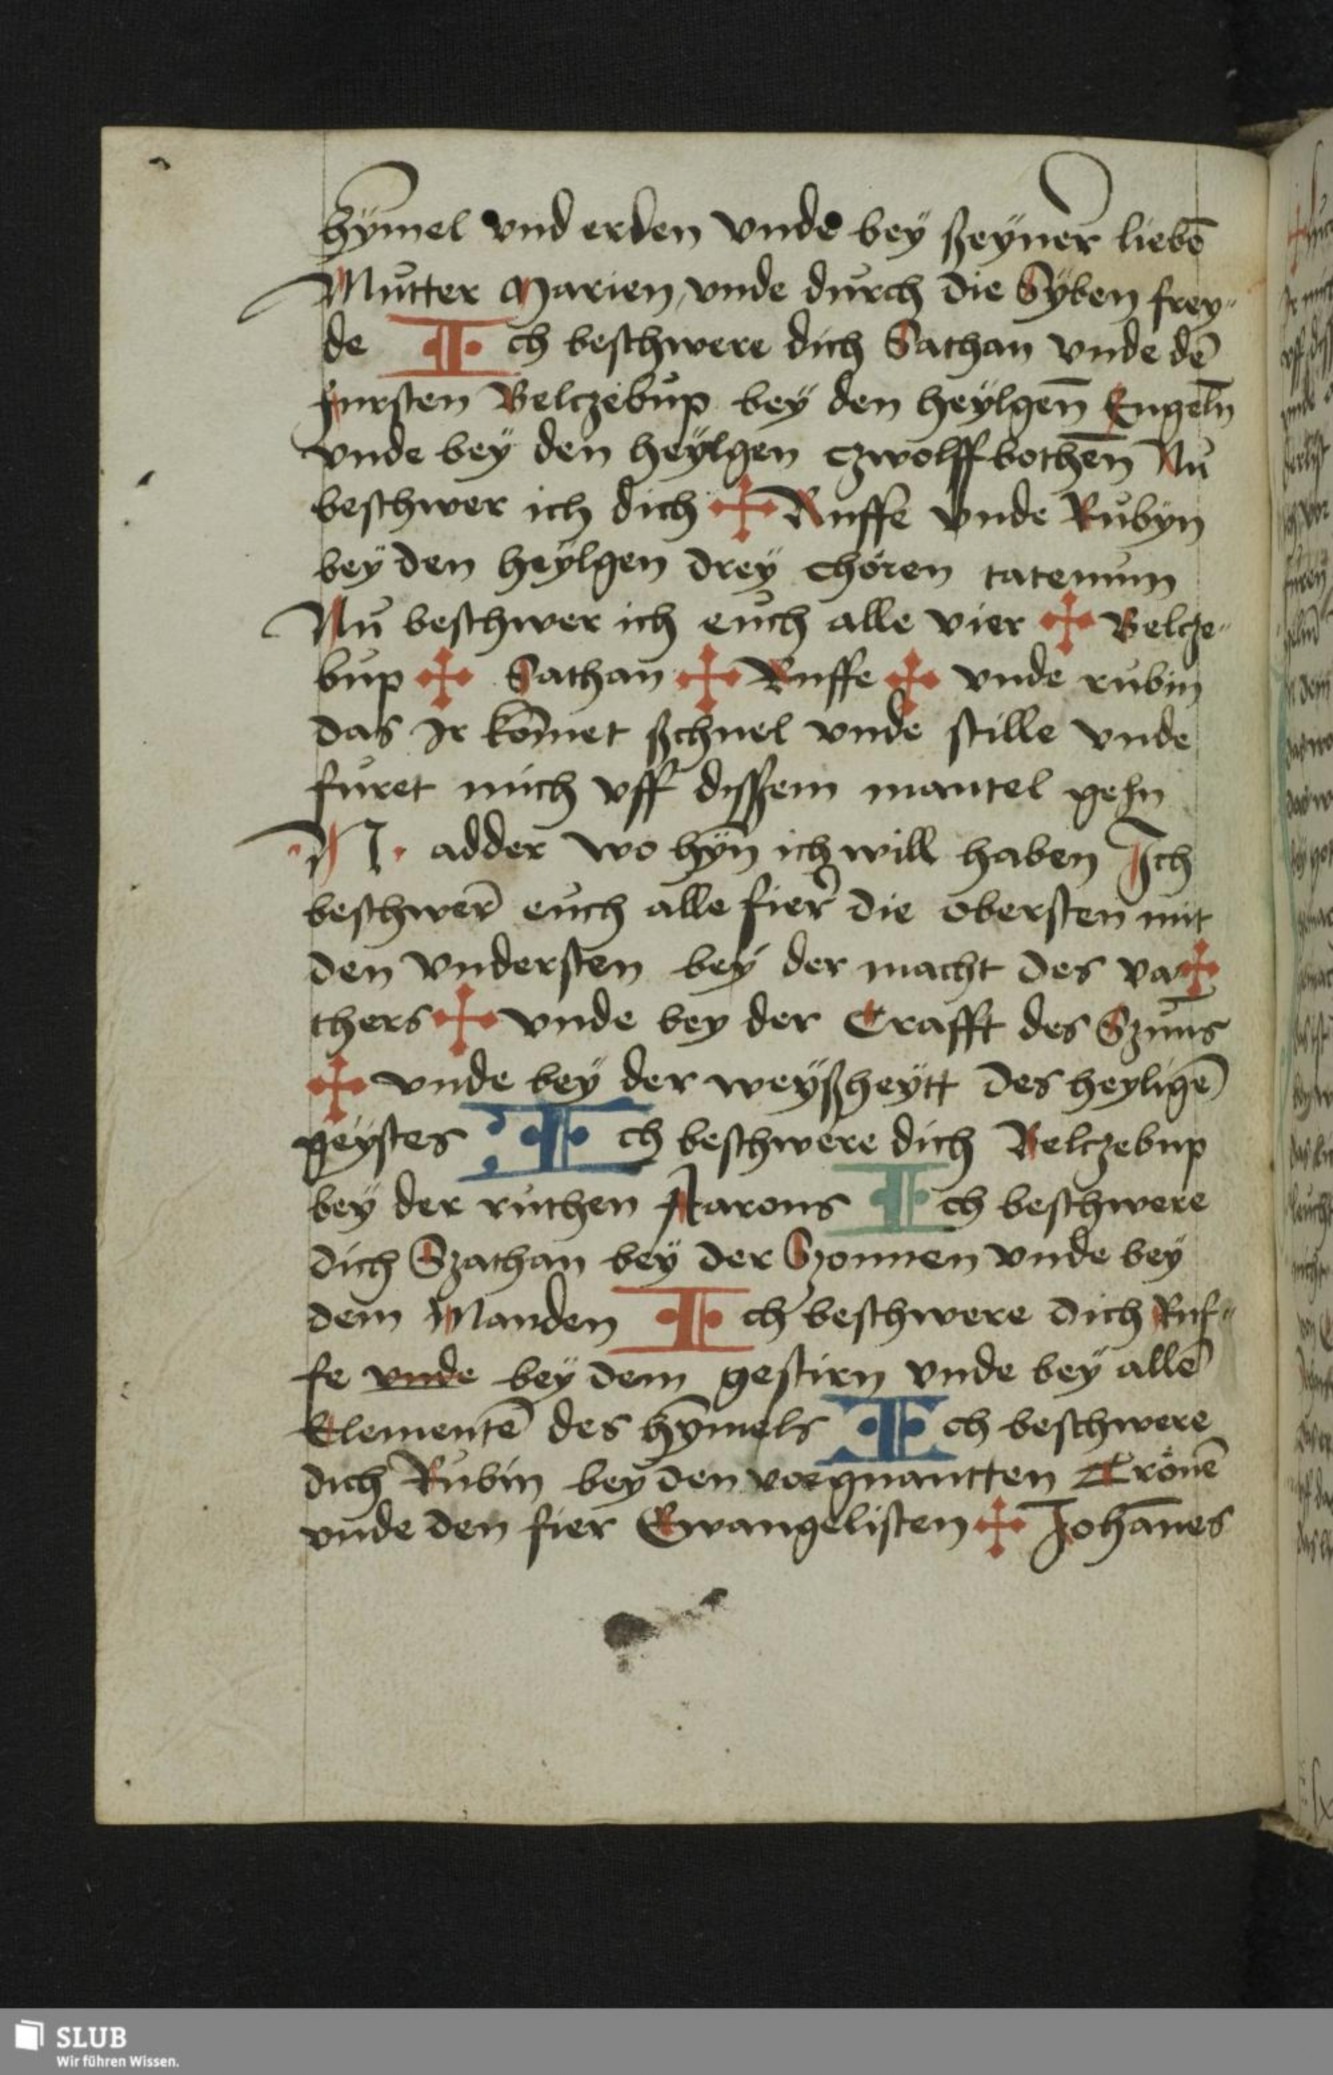 hymel vnd erden vnde bey ßeyner liebē
Mutter Marien vnde durch die Syben frey„
de Ich beschwere dich Sathan vnde dē
fursten Belczebup bey den heylgen̄ Engeln̄
vnde bey den heylgen czwolffbothen̄ Nu
beschwer ich dich ✠ Ruffe vnde Rubyn
bey den heylgen drey choren tatenum
Nu beschwer ich euch alle vier ✠ Belcze„
bup ✠ Sathan ✠ Ruffe ✠ vnde rubin
das Ir kōmet ßchnel vnde stille vnde
furet mich vff dißem mantel gehn
·N· adder wo hyn̄ ich will haben Ich
beschwer̄ euch alle fier die obersten mit
den vndersten bey der macht des va✠
thers ✠ vnde bey der Crafft des Szuns
✠ vnde bey der weyßheytt des heyligē
geystes Ich beschwere dich Belczebup
bey der ruthen Aarons Ich beschwere
dich Szathan bey der Szonnen vnde bey
dem Manden Ich beschwere dich Ruf„
fe vnde bey dem gestirn vnde bey allē
Elementē des hȳmels Ich beschwere
dich Rubin bey den vorgnantten Tronē
vnde den fier Ewangelisten ✠ Johānes
SLUB
Wir führen Wissen.